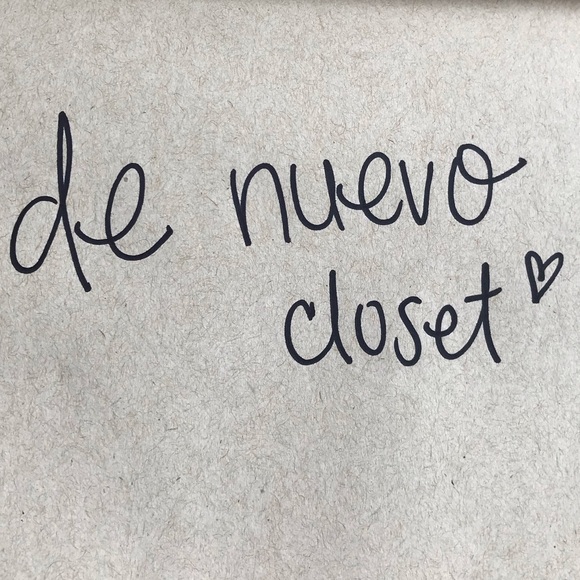 de nuevo
closet ♡